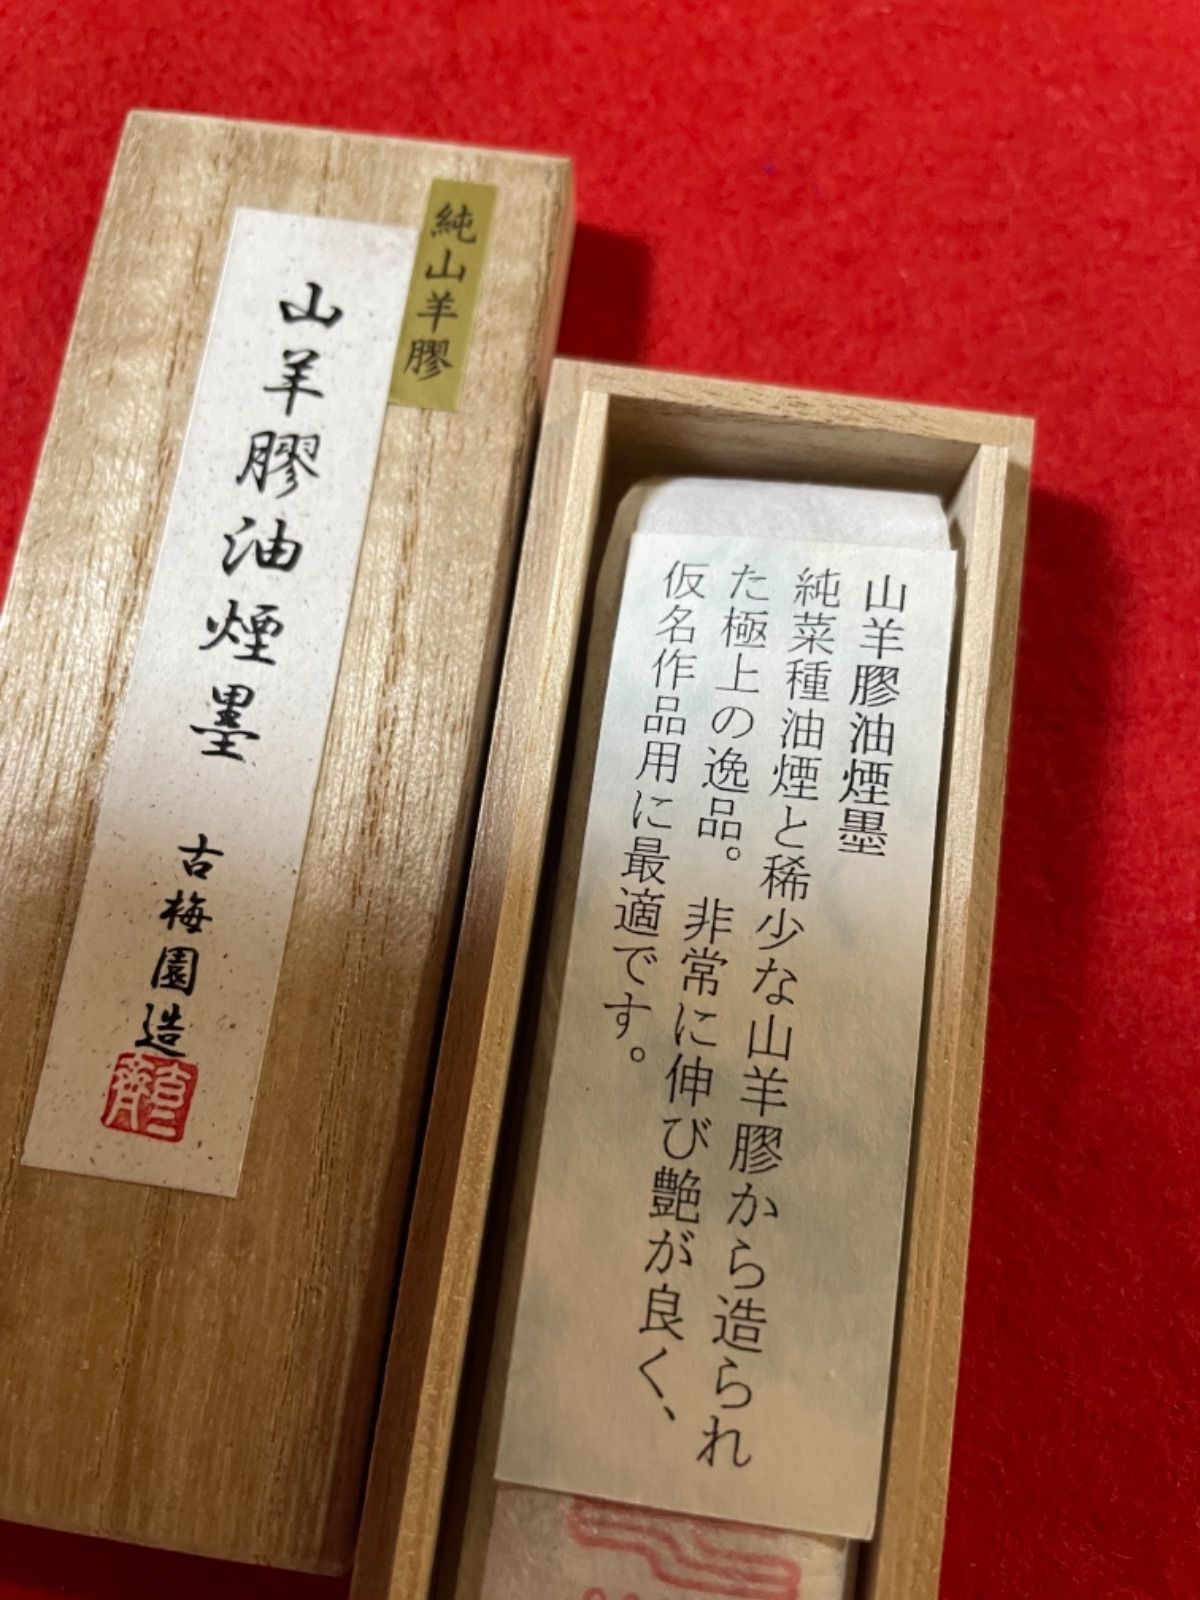 純山羊膠
山羊膠油煙墨
古梅園造
山羊膠油煙墨
純菜種油煙と稀少な山羊膠から造られ
た極上の逸品。非常に伸び艶が良く、
仮名作品用に最適です。